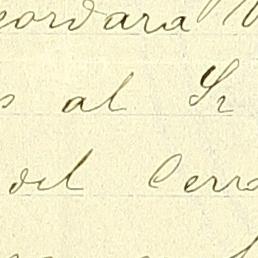 cordara
s al Sr
del Cerro